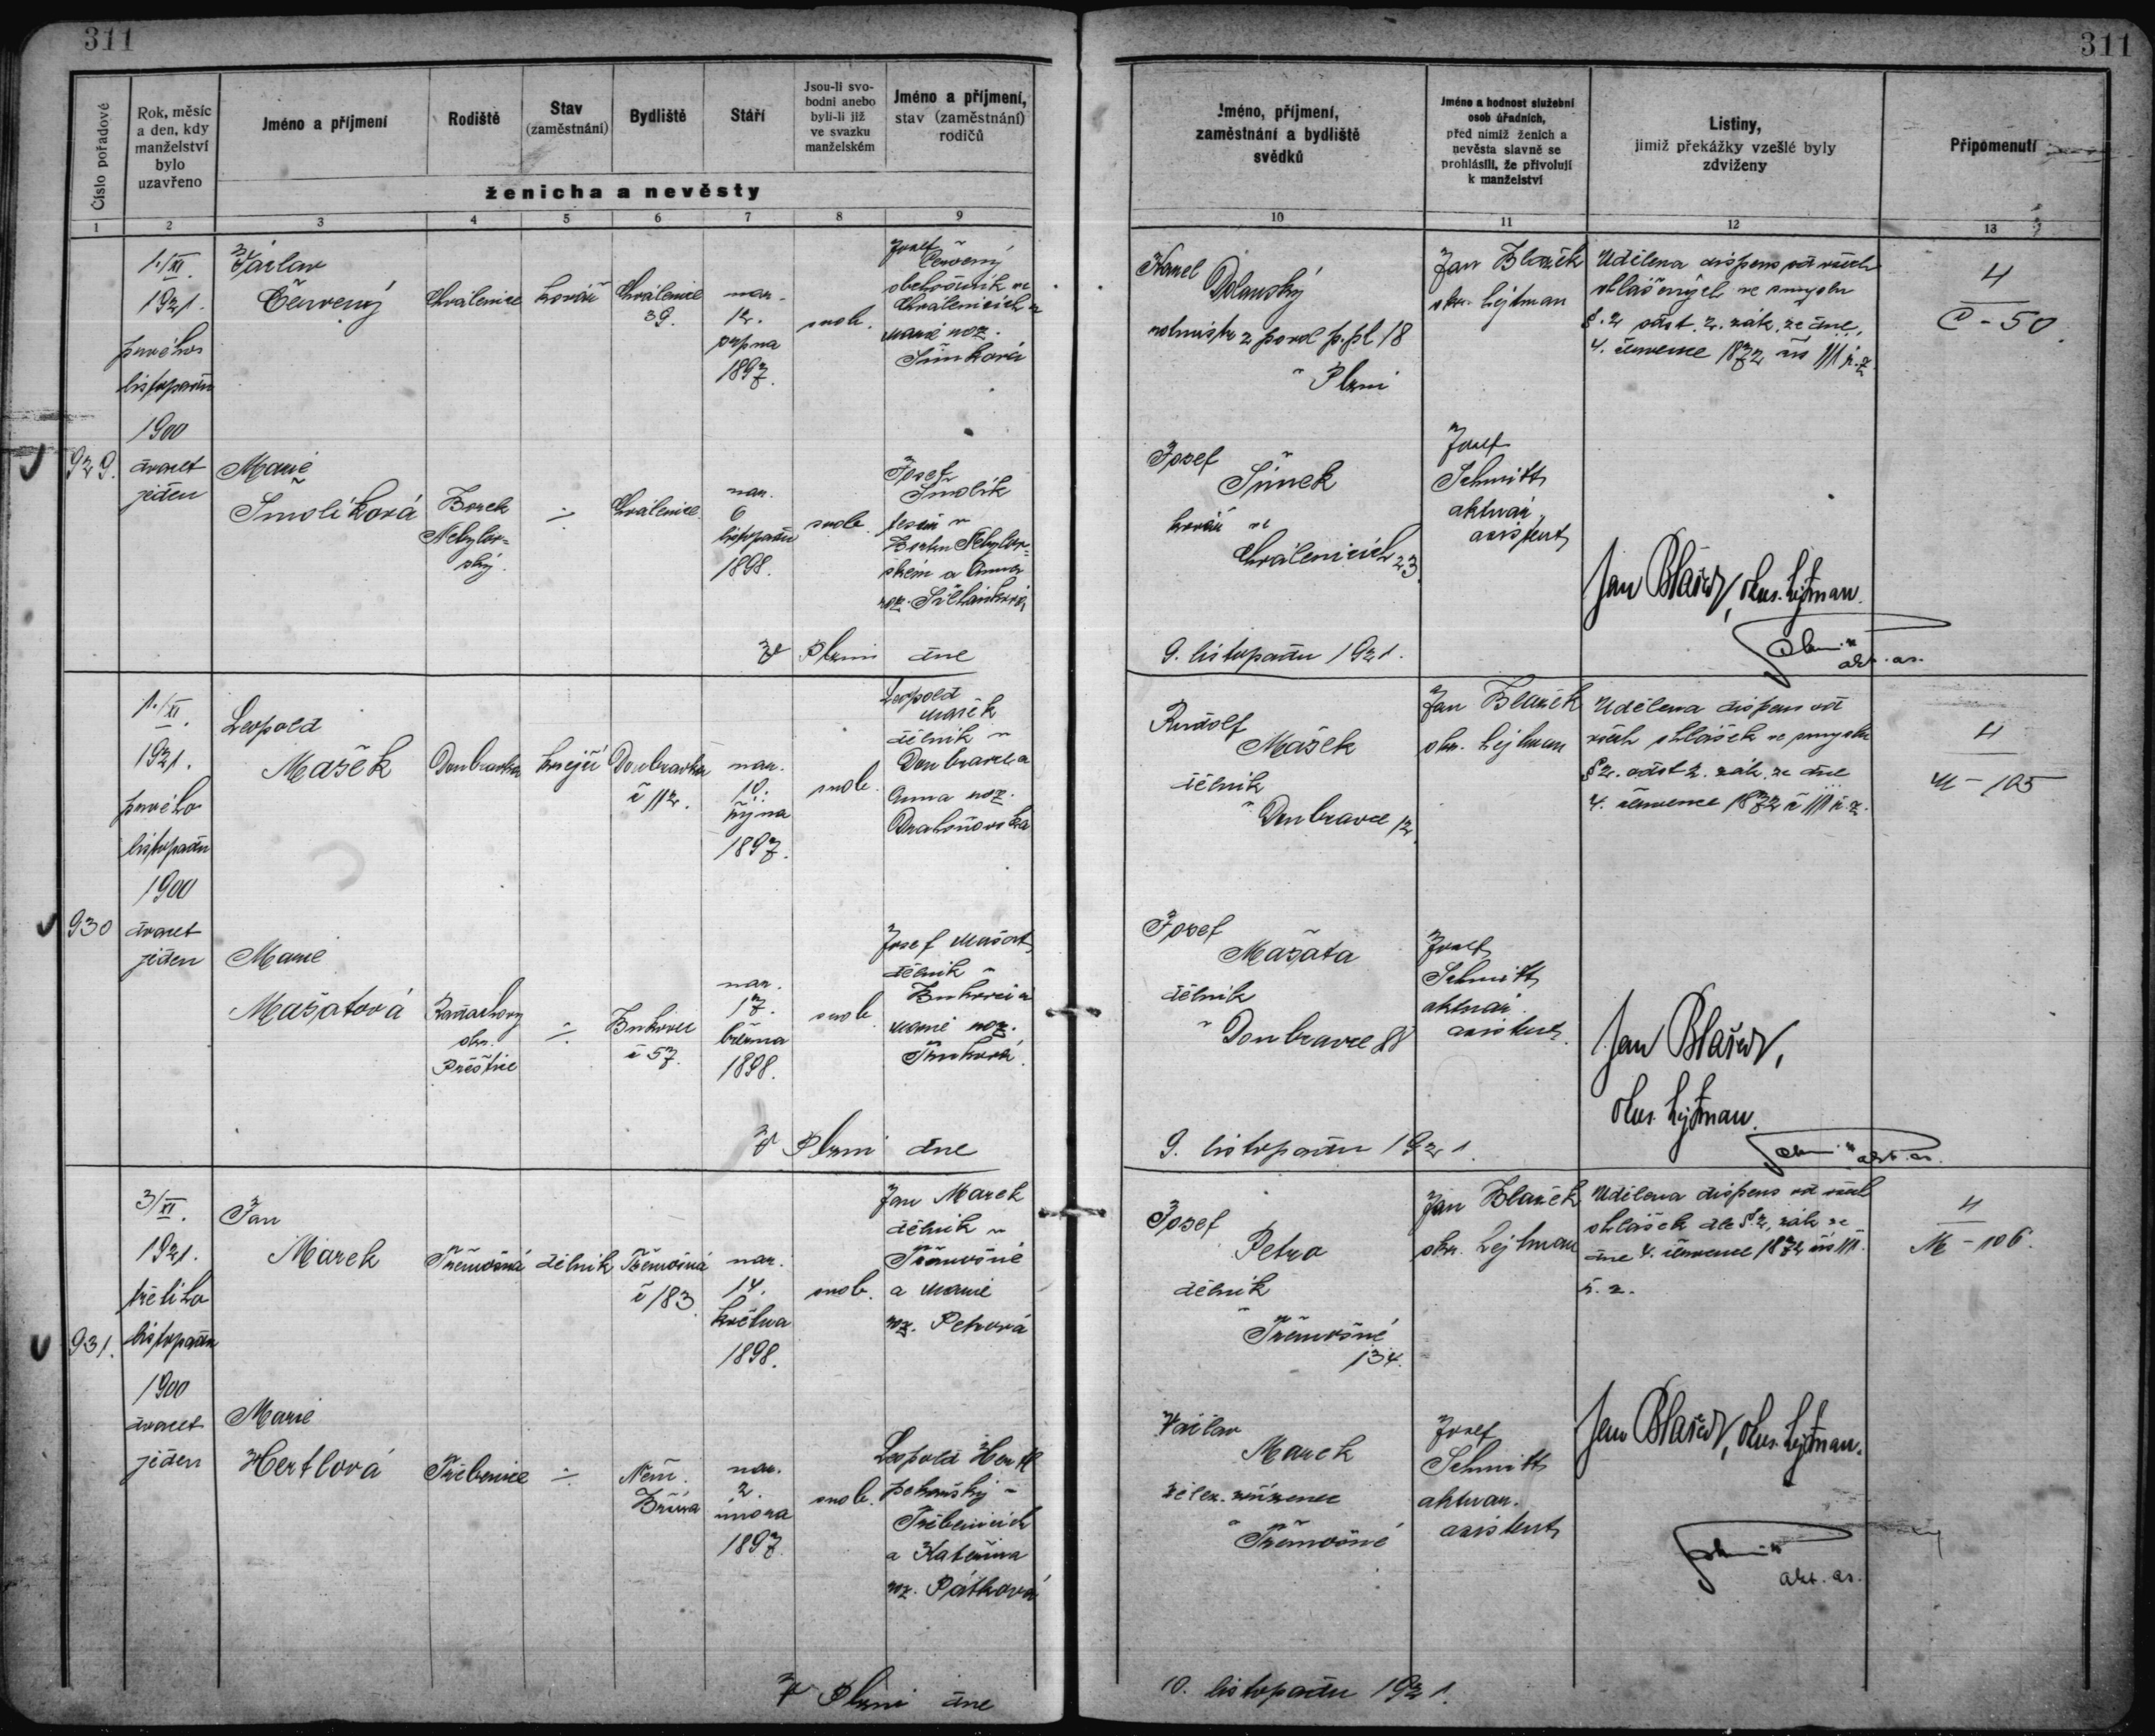 311
311
Číslo pořadové
Rok, měsíc
a den, kdy
manželství
bylo
uzavřeno
Jméno a příjmení
Rodiště
Stav
(zaměstnání)
Bydliště
Stáří
Jsou-li svo-
bodni anebo
byli-li již
ve svazku
manželském
Jméno a příjmení,
stav (zaměstnání)
rodičů
ženicha a nevěsty
1 2 3 4 5 6 7 8 9
Jméno, příjmení,
zaměstnání a bydliště
svědků
Jméno a hodnost služební
osob úřadních,
před nimiž ženich a
nevěsta slavně se
prohlásili, že přivolují
k manželství
Listiny,
jimiž překážky vzešlé byly
zdviženy
Připomenutí
10 11 12 13
929.
1./XI.
1921.
prvého
listopadu
1900
dvacet
jeden
Václav
Červený
Chválenice
kovář
Chválenice
39.
nar.
12.
srpna
1897.
svob.
Josef
Červený
obchodník ve
Chválenicích a
Marie roz.
Šimková
Marie
Smolíková
Borek
Nebylov-
ský.
÷
Chválenice
nar.
6
listopadu
1898.
svob.
Josef
Smolík
tesař v
Borku Nebylov-
ském a Anna
roz.
V Plzni dne
Karel
Dolanský
rotmistr z povol p. pl 18
v Plzni
Josef
Šimek
kovář ve
Chválenicích 23.
9. listopadu 1921.
Jan Blažek
okr. hejtman
Josef
Schmitt
aktuár.
asistent
Udělena dispens od všech
ohlášených ve smyslu
§. 2 odst. 2. zák. ze dne
4. července 1872 čís 111 ř. z.
Jan Blažek, okres. hejtman.
Schmitt
akt. as.
4
Č - 50
930
1./XI.
1921.
prvého
listopadu
1900
dvacet
jeden
Leopold
Mašek
Doubravka
krejčí
Doubravka
č 112.
nar.
10.
října
1897.
svob.
Leopold
Mašek
dělník v
Doubravce a
Anna roz.
Marie
Mašatová
okr.
Přeštice
÷
Bukovec
č 57.
nar.
17.
března
1898.
svob.
Josef Mašat
dělník v
Bukovci a
Marie roz.
V Plzni dne
Rudolf
Mašek
dělník
v Doubravce 12
Josef
Mašata
dělník
v Doubravce 88
9. listopadu 1921.
Jan Blažek
okr. hejtman
Josef
Schmitt
aktuár.
asistent
Udělena dispens od
všech ohlášek ve smyslu
§ 2. odst 2. zák. ze dne
4. července 1872 č 111 ř. z.
Jan Blažek,
okres. hejtman.
Schmitt akt. as.
4
M - 105
931.
3/XI.
1921.
třetího
listopadu
1900
dvacet
jeden
Jan
Marek
Třemošná
dělník
Třemošná
č 183
nar.
14.
května
1898.
svob.
Jan Marek
dělník v
Třemošné
a Marie
roz. Petrová
Marie
Hertlová
Třebenice
÷
Něm.
Bříza
nar.
2.
února
1897.
svob.
Leopold Hertl
pekařský v
Třebenicích
a Kateřina
roz. Pátková
V Plzni dne
Josef
Petro
dělník
v Třemošné
134.
Václav
Marek
želez. zřízenec
v Třemošné
10. listopadu 1921.
Jan Blažek
okr. hejtman
Josef
Schmitt
aktuar.
asistent
Udělena dispens od všech
ohlášek dle § 2, zák ze
dne 4. července 1872 čís 111.
ř. z.
Jan Blažek, okres. hejtman.
Schmitt
akt. as.
4
M - 106